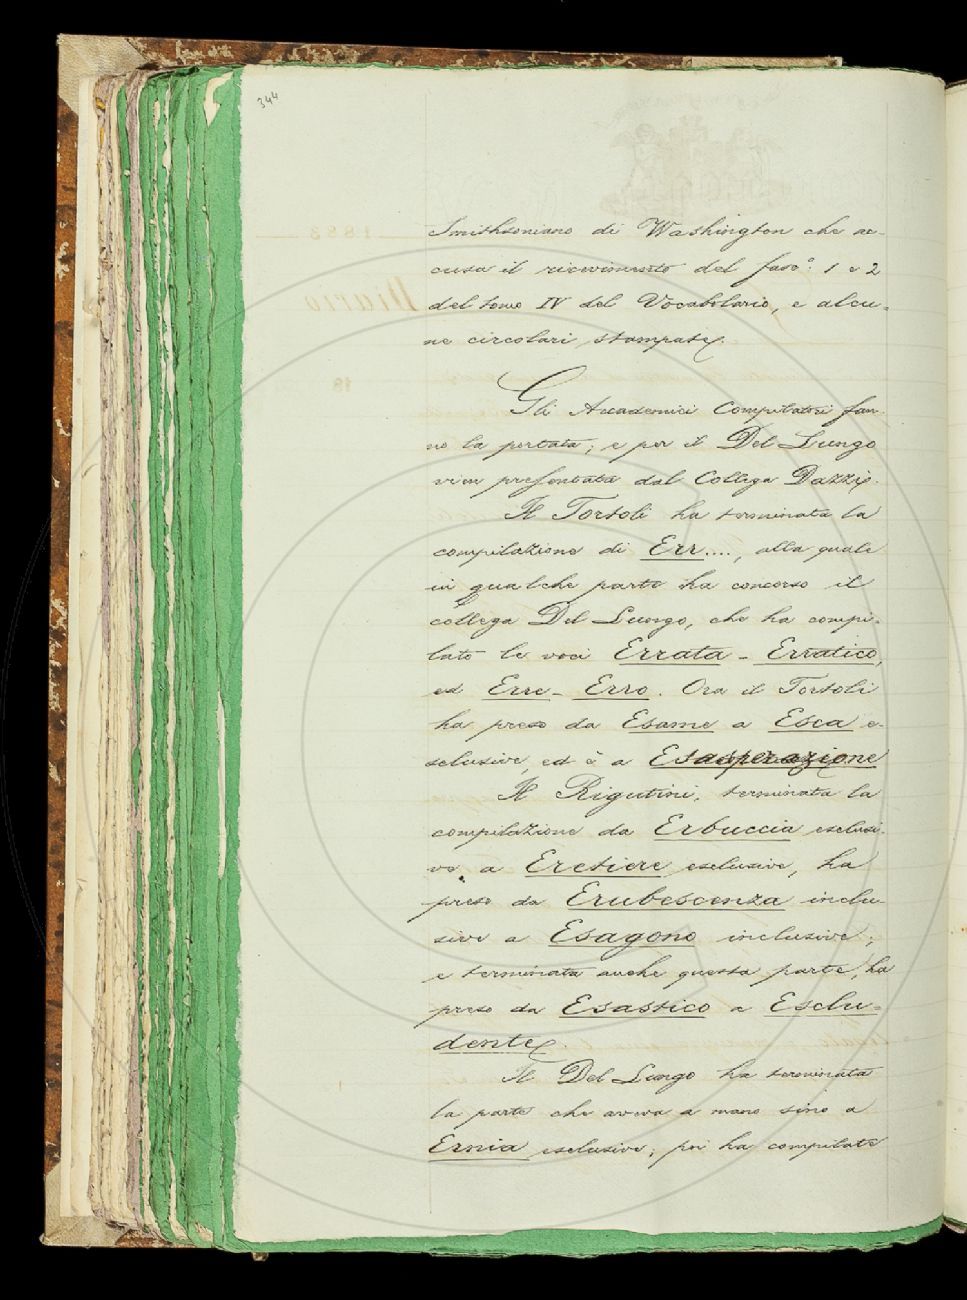 344
Smithsoniano di Washington che ac-
cusa il ricevimento del fasc.° 1 e 2
del tomo IV del Vocabolario, e alcu-
ne circolari stampate.
Gli Accademici Compilatori fan-
no la portata, e per il Del Lungo
vien presentata dal Collega Dazzi.
Il Tortoli ha terminata la
compilazione di Err...., alla quale
in qualche parte ha concorso il
collega Del Lungo, che ha compi-
lato le voci Errata - Erratico,
ed Erre - Erro. Ora il Tortoli
ha preso da Esame a Esca e-
sclusive, ed è a Esasperazione
Il Rigutini, terminata la
compilazione da Erbuccia esclusi-
ve, a Eretiere esclusive, ha
preso da Erubescenza inclu-
sive a Esagono inclusive;
e terminata anche questa parte, ha
preso da Esastico a Esclu-
dente.
Il Del Lungo ha terminata
la parte che aveva a mano sino a
Ernia esclusive; poi ha compilate
1883
Diario
18